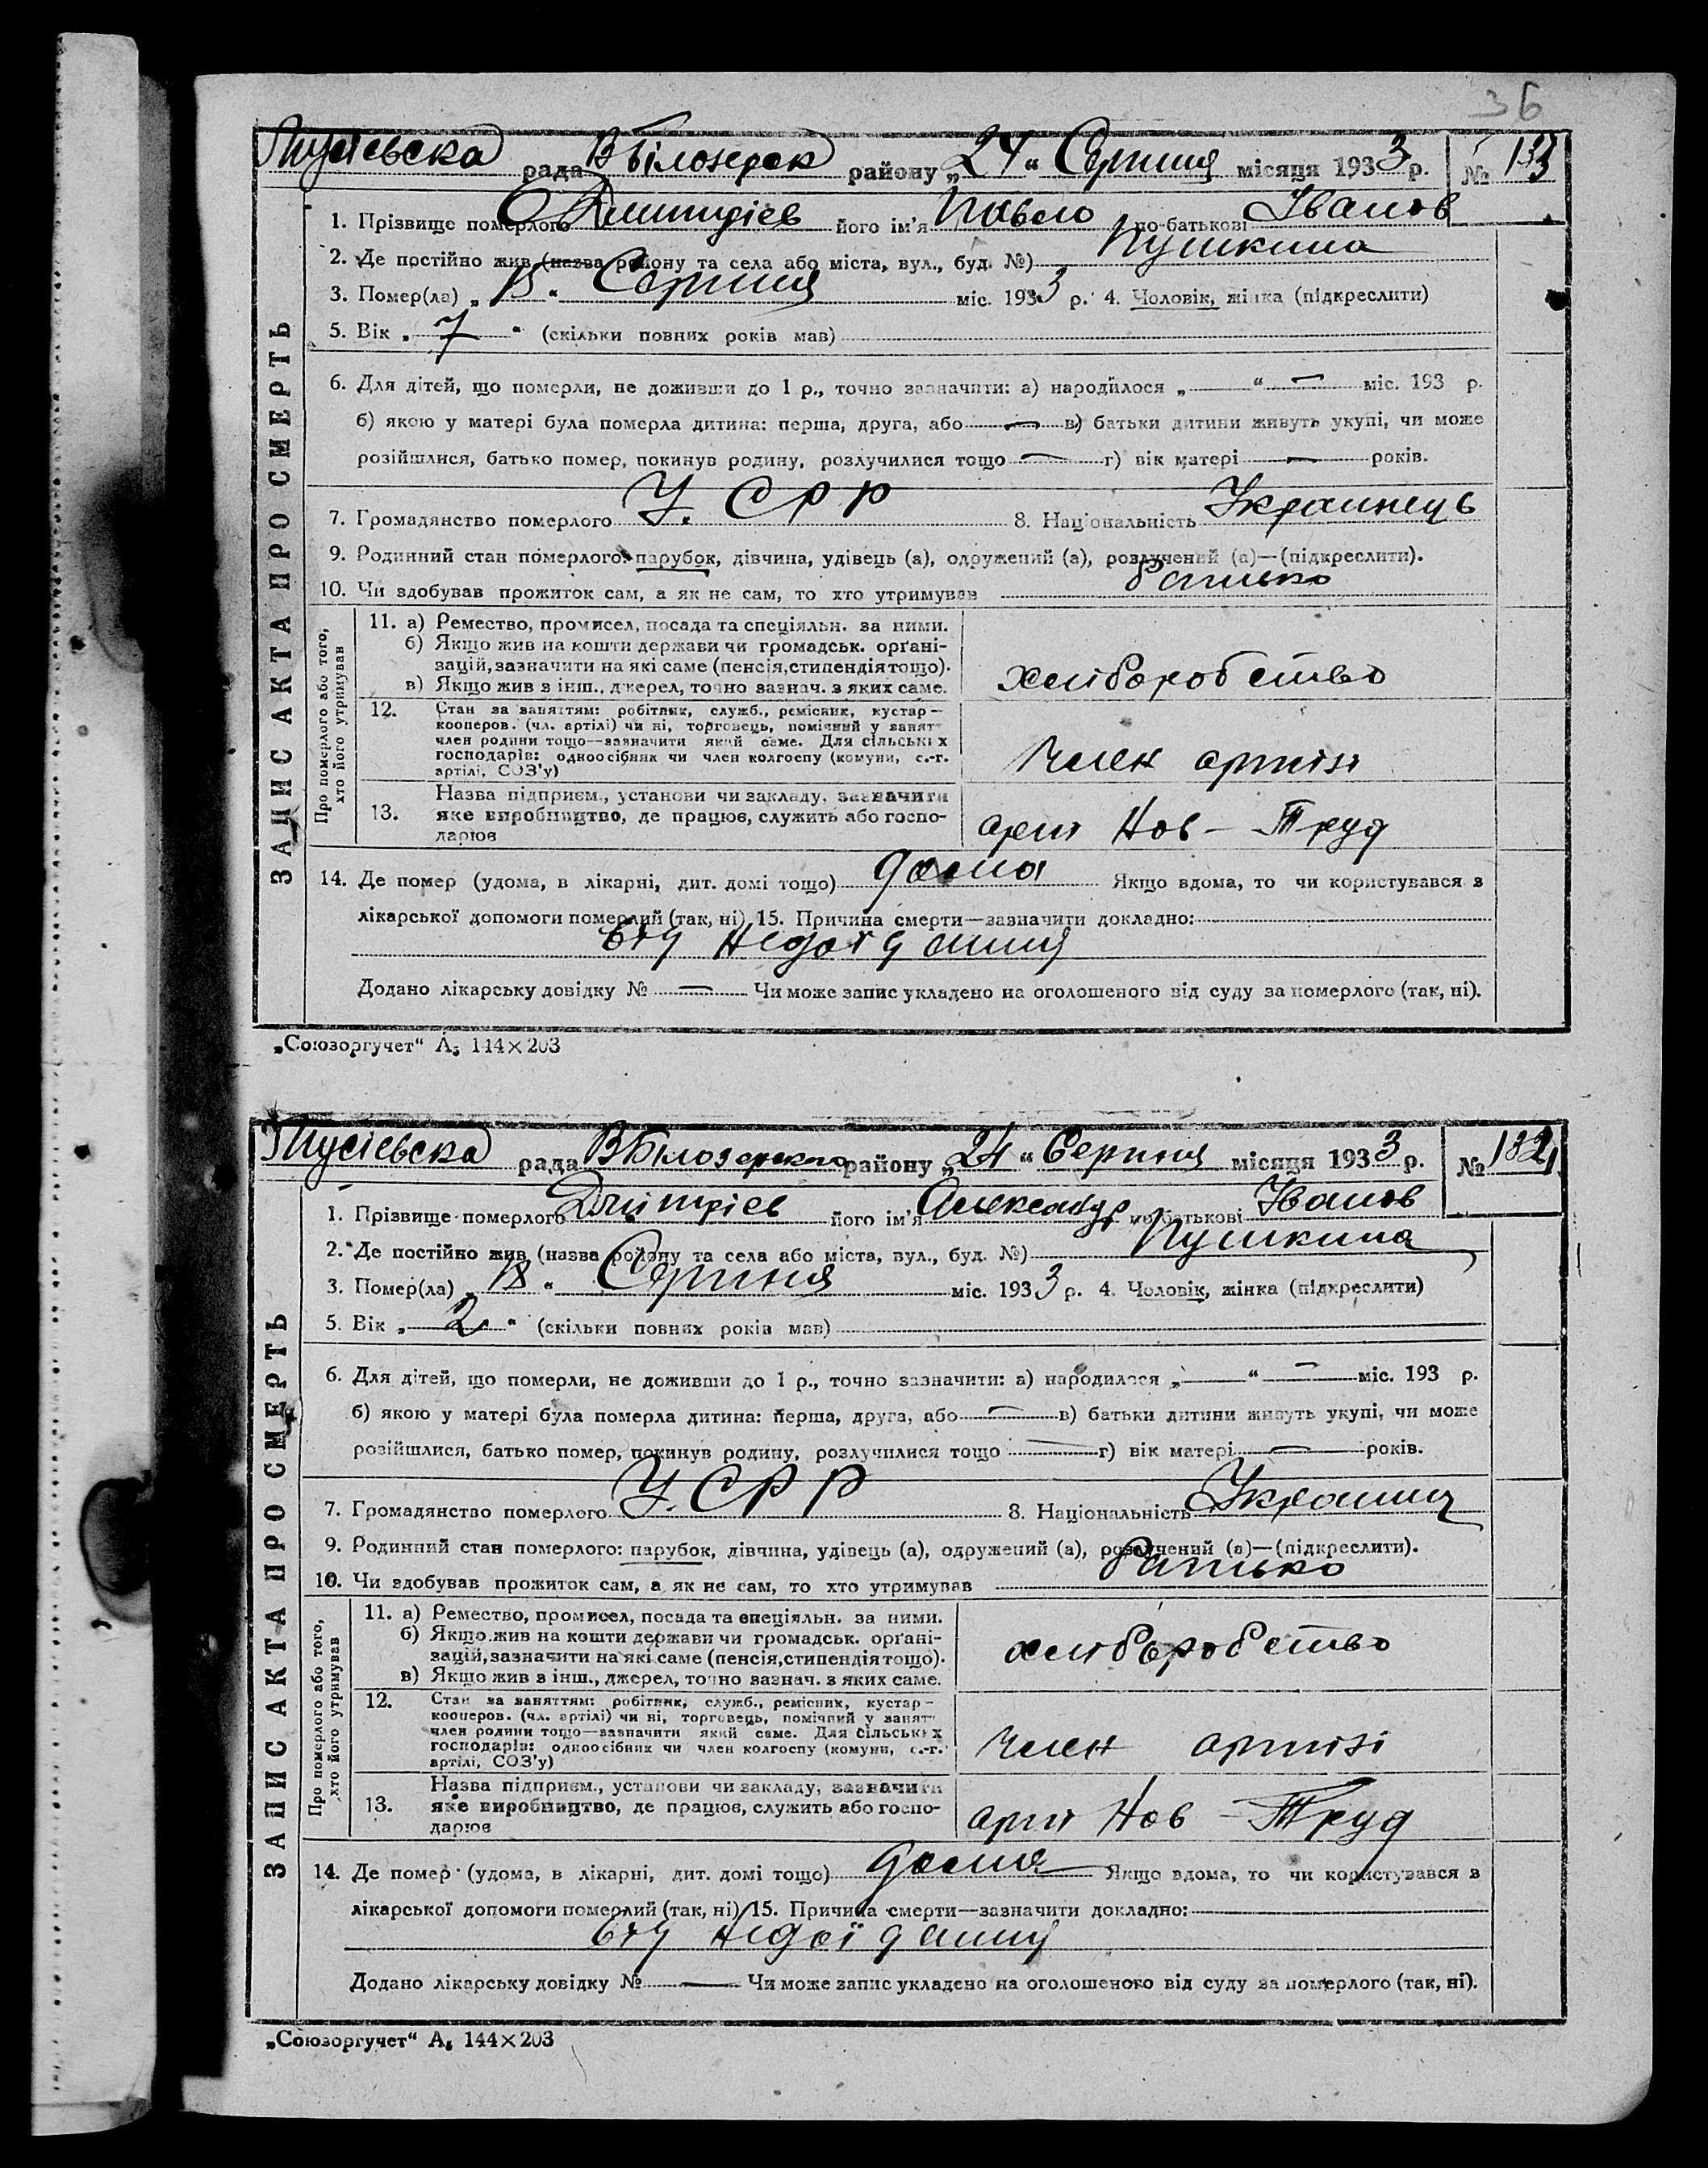 36
Гусієвска рада ВБілозерск району „24“ Серпня місяця 1933 р. № 133
1. Прізвище померлого Дмитрієв його ім'я Павло по-батькові Іванов
2. Де постійно жив (назва району та села або міста, вул., буд. №) Пушкина
3. Помер(ла) „15“ Серпня міс. 1933 р. 4. Чоловік, жінка (підкреслити)
5. Вік „7“ (скільки повних років мав)
6. Для дітей, що померли, не доживши до 1 р., точно зазначити: а) народилося „—“ — міс. 193 р.
б) якою у матері була померла дитина: перша, друга, або — в) батьки дитини живуть укупі, чи може
розійшлися, батько помер, покинув родину, розлучилися тощо — г) вік матері — років.
7. Громадянство померлого У.СРР 8. Національність Украинець
9. Родинний стан померлого: парубок, дівчина, удівець (а), одружений (а), розлучений (а)—(підкреслити).
10. Чи здобував прожиток сам, а як не сам, то хто утримував Батько
ЗАПИС АКТА ПРО СМЕРТЬ
Про померлого або того,
хто його утримував
11. а) Ремество, промисел, посада та спеціяльн. за ними.
б) Якщо жив на кошти держави чи громадськ. орґані-
зацій, зазначити на які саме (пенсія, стипендія тощо).
в) Якщо жив з інш., джерел, точно зазнач. з яких саме.
хліборобство
12. Стан за заняттям: робітник, служб., ремісник, кустар—
кооперов. (чл. артілі) чи ні, торговець, помічний у занят-
член родини тощо—зазначити який саме. Для сільських
господарів: одноосібник чи член колгоспу (комуни, с.-г.
артілі, СОЗ'у)
Член артілі
13. Назва підприєм., установи чи закладу, зазначити
яке виробництво, де працює, служить або госпо-
дарює
арт Нов – Труд
14. Де помер (удома, в лікарні, дит. домі тощо) дома Якщо вдома, то чи користувався з
лікарської допомоги померлий (так, ні) 15. Причина смерти—зазначити докладно:
від недоїдання
Додано лікарську довідку № — Чи може запис укладено на оголошеного від суду за померлого (так, ні).
„Союзоргучет“ А₅ 144×203
Гусієвска рада ВБілозерского району „24“ Серпня місяця 1933 р. № 132
1. Прізвище померлого Дмитрієв його ім'я Александр по-батькові Іванов
2. Де постійно жив (назва району та села або міста, вул., буд. №) Пушкина
3. Помер(ла) „18“ Серпня міс. 1933 р. 4. Чоловік, жінка (підкреслити)
5. Вік „2“ (скільки повних років мав)
6. Для дітей, що померли, не доживши до 1 р., точно зазначити: а) народилося „—“ — міс. 193 р.
б) якою у матері була померла дитина: перша, друга, або — в) батьки дитини живуть укупі, чи може
розійшлися, батько помер, покинув родину, розлучилися тощо — г) вік матері — років.
7. Громадянство померлого У.СРР 8. Національність
9. Родинний стан померлого: парубок, дівчина, удівець (а), одружений (а), розлучений (а)—(підкреслити).
10. Чи здобував прожиток сам, а як не сам, то хто утримував Батько
ЗАПИС АКТА ПРО СМЕРТЬ
Про померлого або того,
хто його утримував
11. а) Ремество, промисел, посада та спеціяльн. за ними.
б) Якщо жив на кошти держави чи громадськ. орґані-
зацій, зазначити на які саме (пенсія, стипендія тощо).
в) Якщо жив з інш., джерел, точно зазнач. з яких саме.
хліборобство
12. Стан за заняттям: робітник, служб., ремісник, кустар—
кооперов. (чл. артілі) чи ні, торговець, помічний у занят-
член родини тощо—зазначити який саме. Для сільських
господарів: одноосібник чи член колгоспу (комуни, с.-г.
артілі, СОЗ'у)
Член артілі
13. Назва підприєм., установи чи закладу, зазначити
яке виробництво, де працює, служить або госпо-
дарює
арт Нов – Труд
14. Де помер (удома, в лікарні, дит. домі тощо) дома Якщо вдома, то чи користувався з
лікарської допомоги померлий (так, ні) 15. Причина смерти—зазначити докладно:
від недоїдання
Додано лікарську довідку № — Чи може запис укладено на оголошеного від суду за померлого (так, ні).
„Союзоргучет“ А₅ 144×203